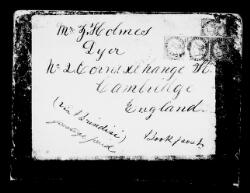 Mr Z Holmes
Dyer
No 2 Corn Exchange St.
Cambridge
England.
(via Brindisi)
postage paid
Book post